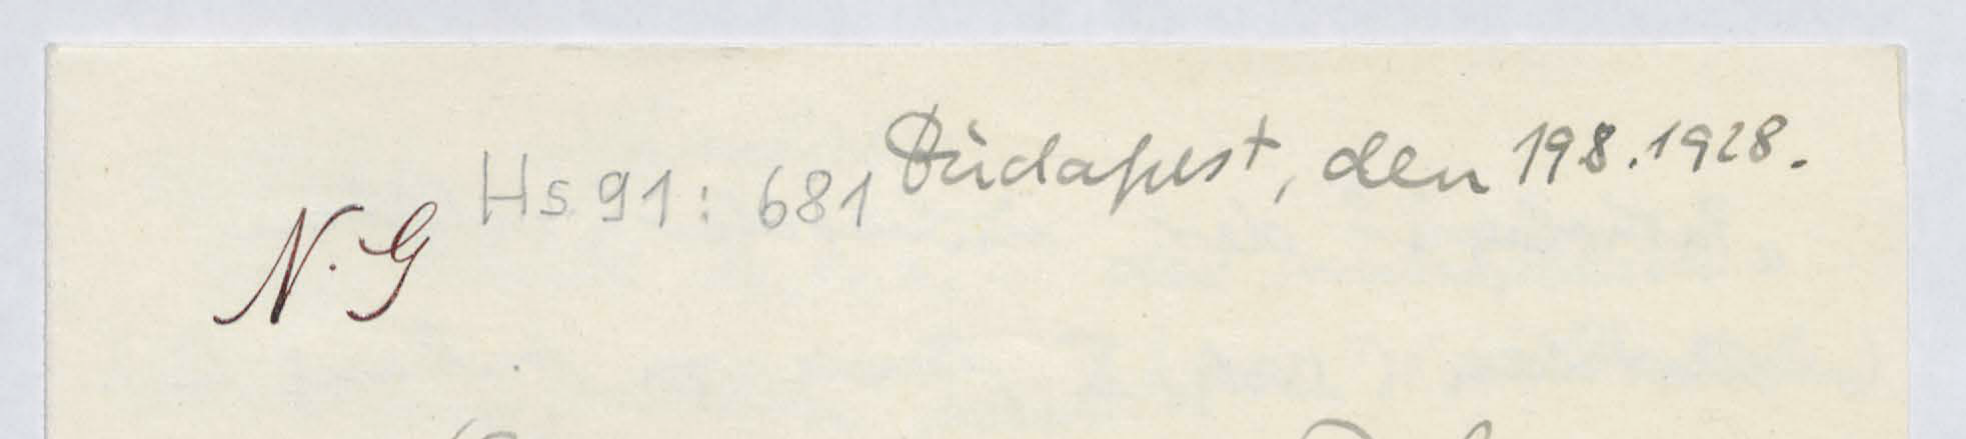 Hs 91: 681 Budapest, den 198.1928.
N. G